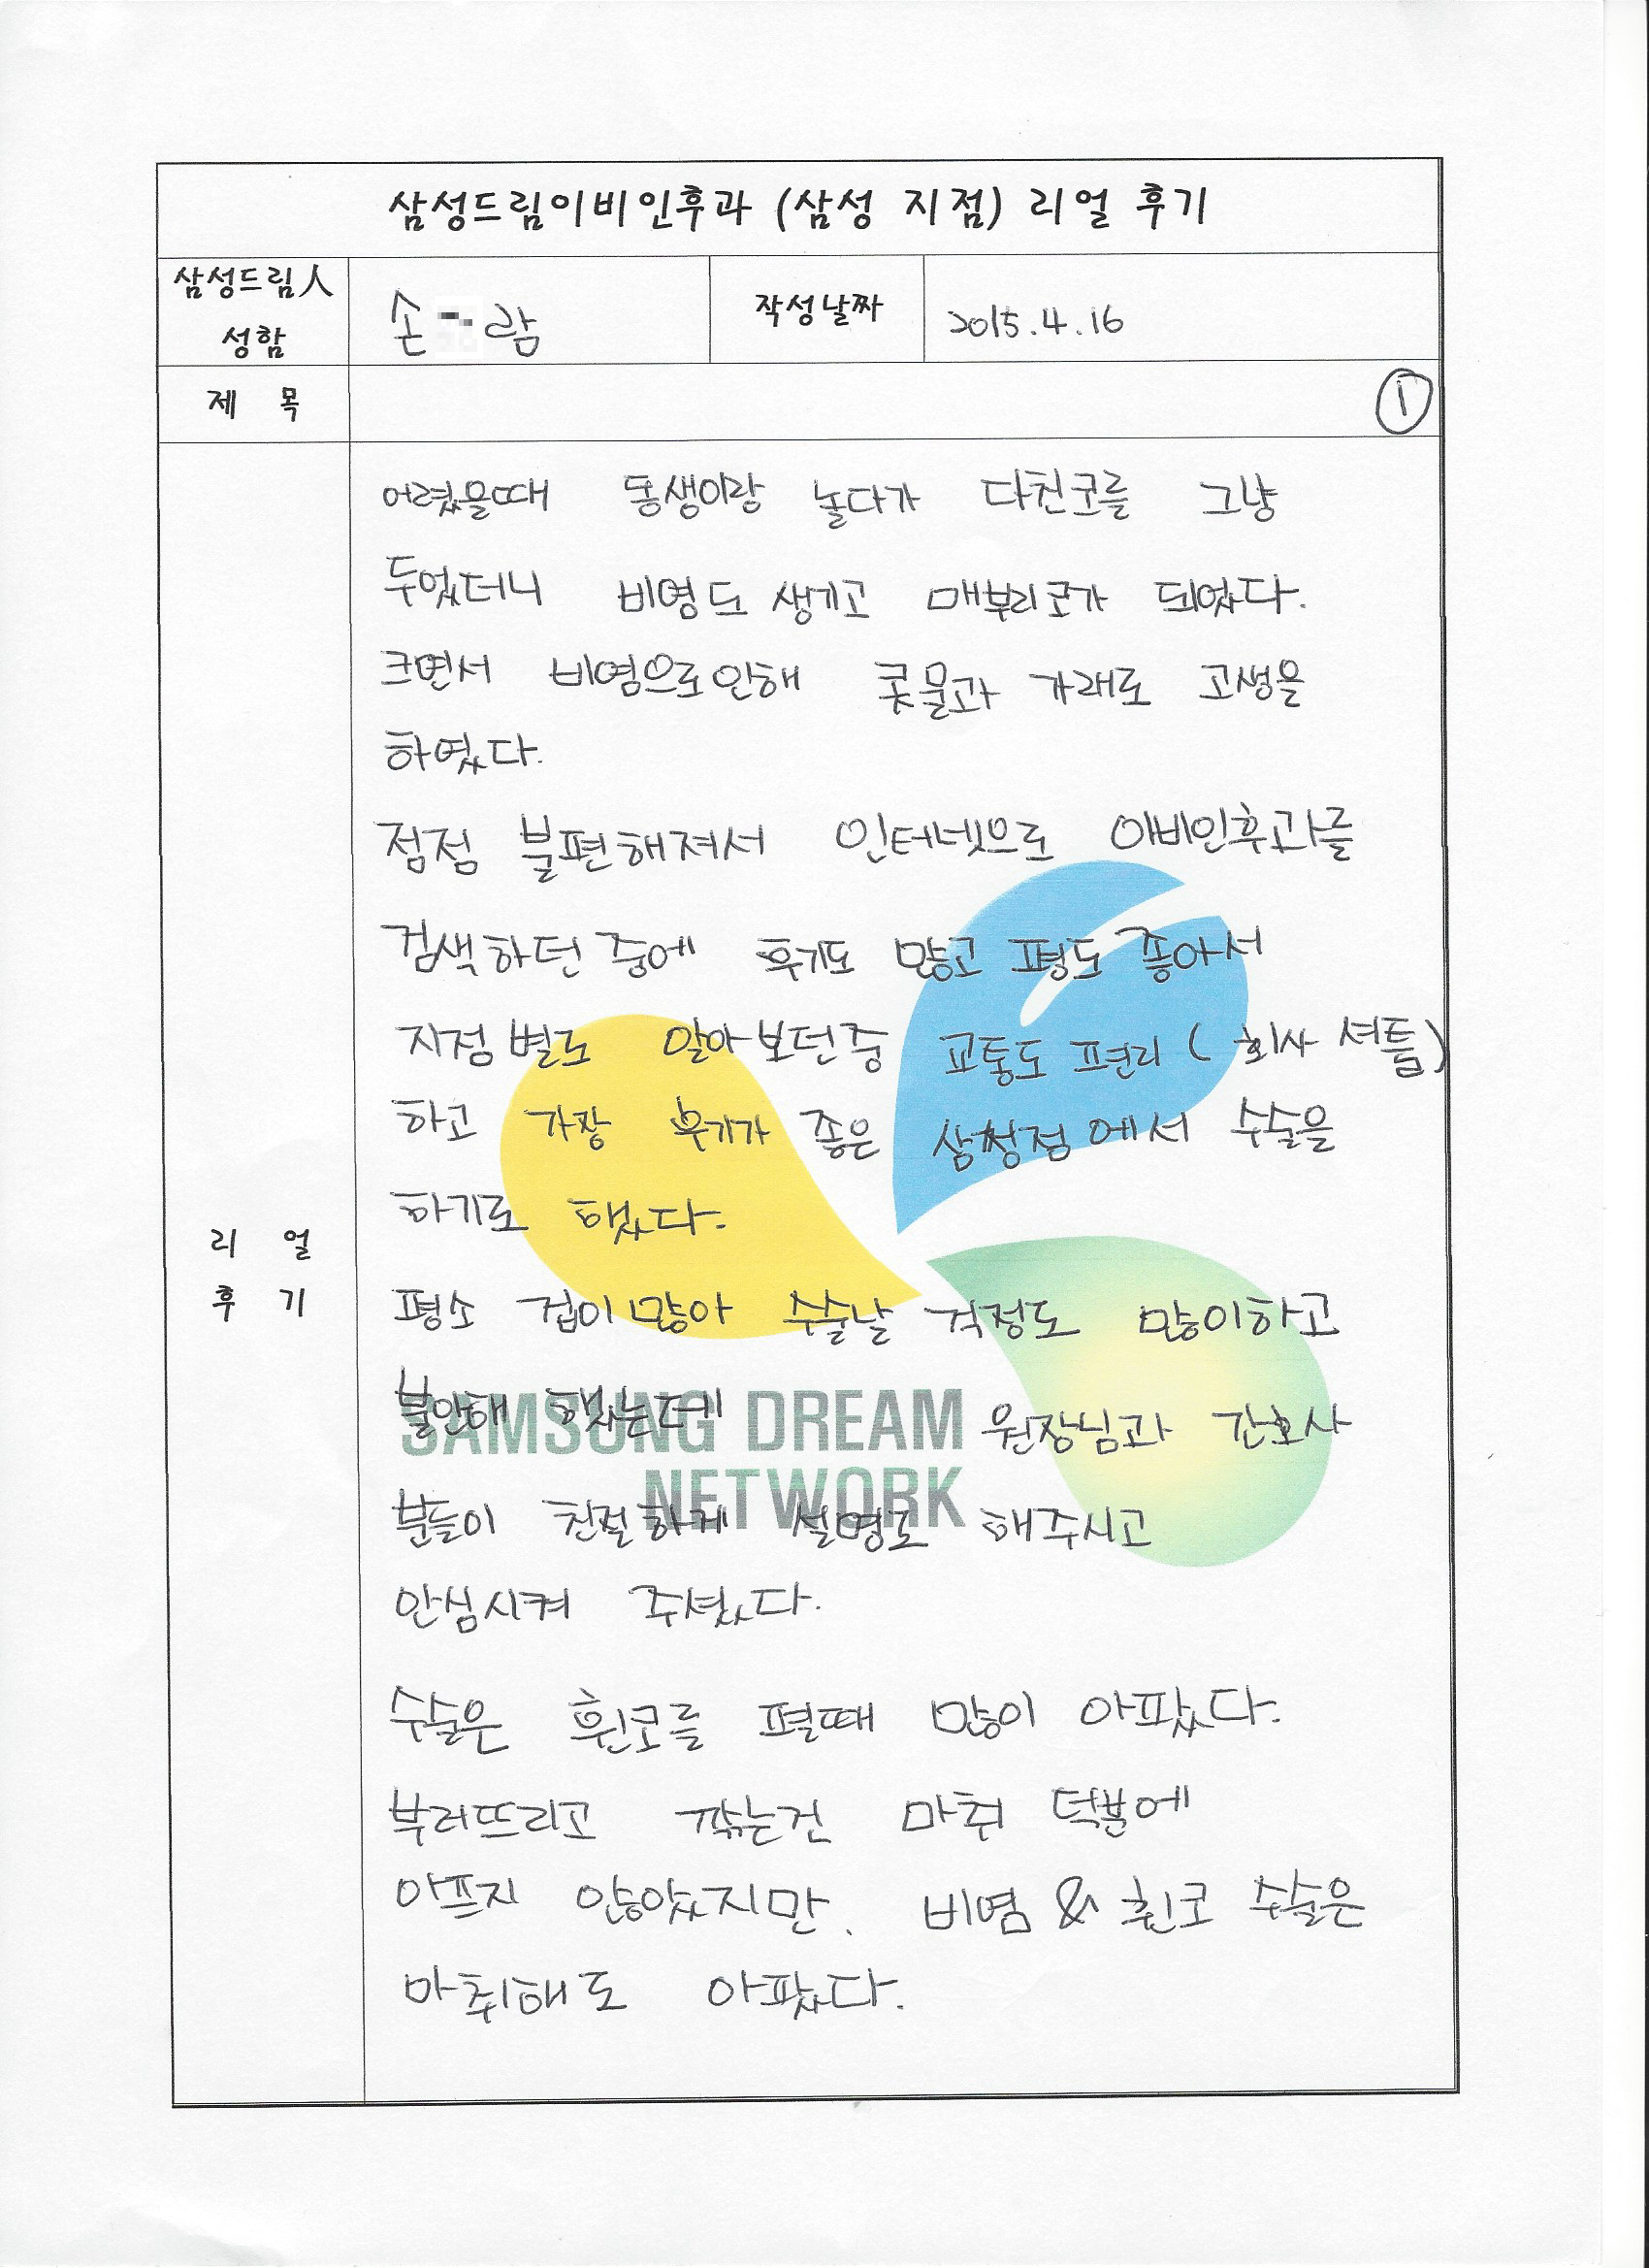 삼성드림이비인후과 (삼성 지점) 리얼 후기
삼성드림人
성함
손 람
작성날짜
2015.4.16
제 목
①
어렸을때 동생이랑 놀다가 다친코를 그냥
두었더니 비염도 생기고 매부리코가 되었다.
크면서 비염으로인해 콧물과 가래로 고생을
하였다.
점점 불편해져서 인터넷으로 이비인후과를
검색하던 중에 후기도 많고 평도 좋아서
지점별로 알아보던중 교통도 편리 ( 회사 셔틀)
하고 가장 후기가 좋은 에서 수술을
하기로 했다.
리 얼
후 기
평소 겁이많아 수술날 걱정도 많이하고
불안해 했는데 원장님과 간호사
SAMSUNG DREAM
NETWORK
분들이 친절하게 설명도 해주시고
안심시켜 주셨다.
수술은 휜코를 펼때 많이 아팠다.
부러뜨리고 깎는건 마취 덕분에
아프지 않았지만. 비염 & 휜코 수술은
마취해도 아팠다.